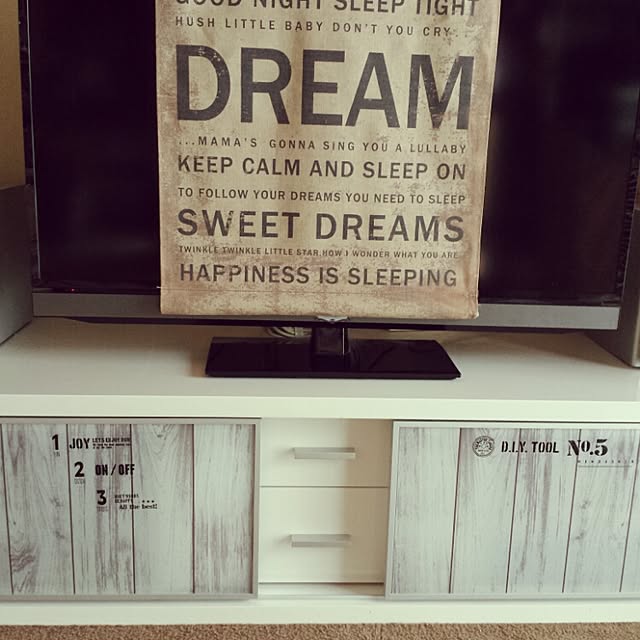 GOOD NIGHT SLEEP TIGHT
HUSH LITTLE BABY DON'T YOU CRY.
DREAM
...MAMA'S GONNA SING YOU A LULLABY
KEEP CALM AND SLEEP ON
TO FOLLOW YOUR DREAMS YOU NEED TO SLEEP
SWEET DREAMS
TWINKLE TWINKLE LITTLE STAR, HOW I WONDER WHAT YOU ARE
HAPPINESS IS SLEEPING
1 JOY
2 ON/OFF
3
All the best!
D.I.Y. TOOL No.5